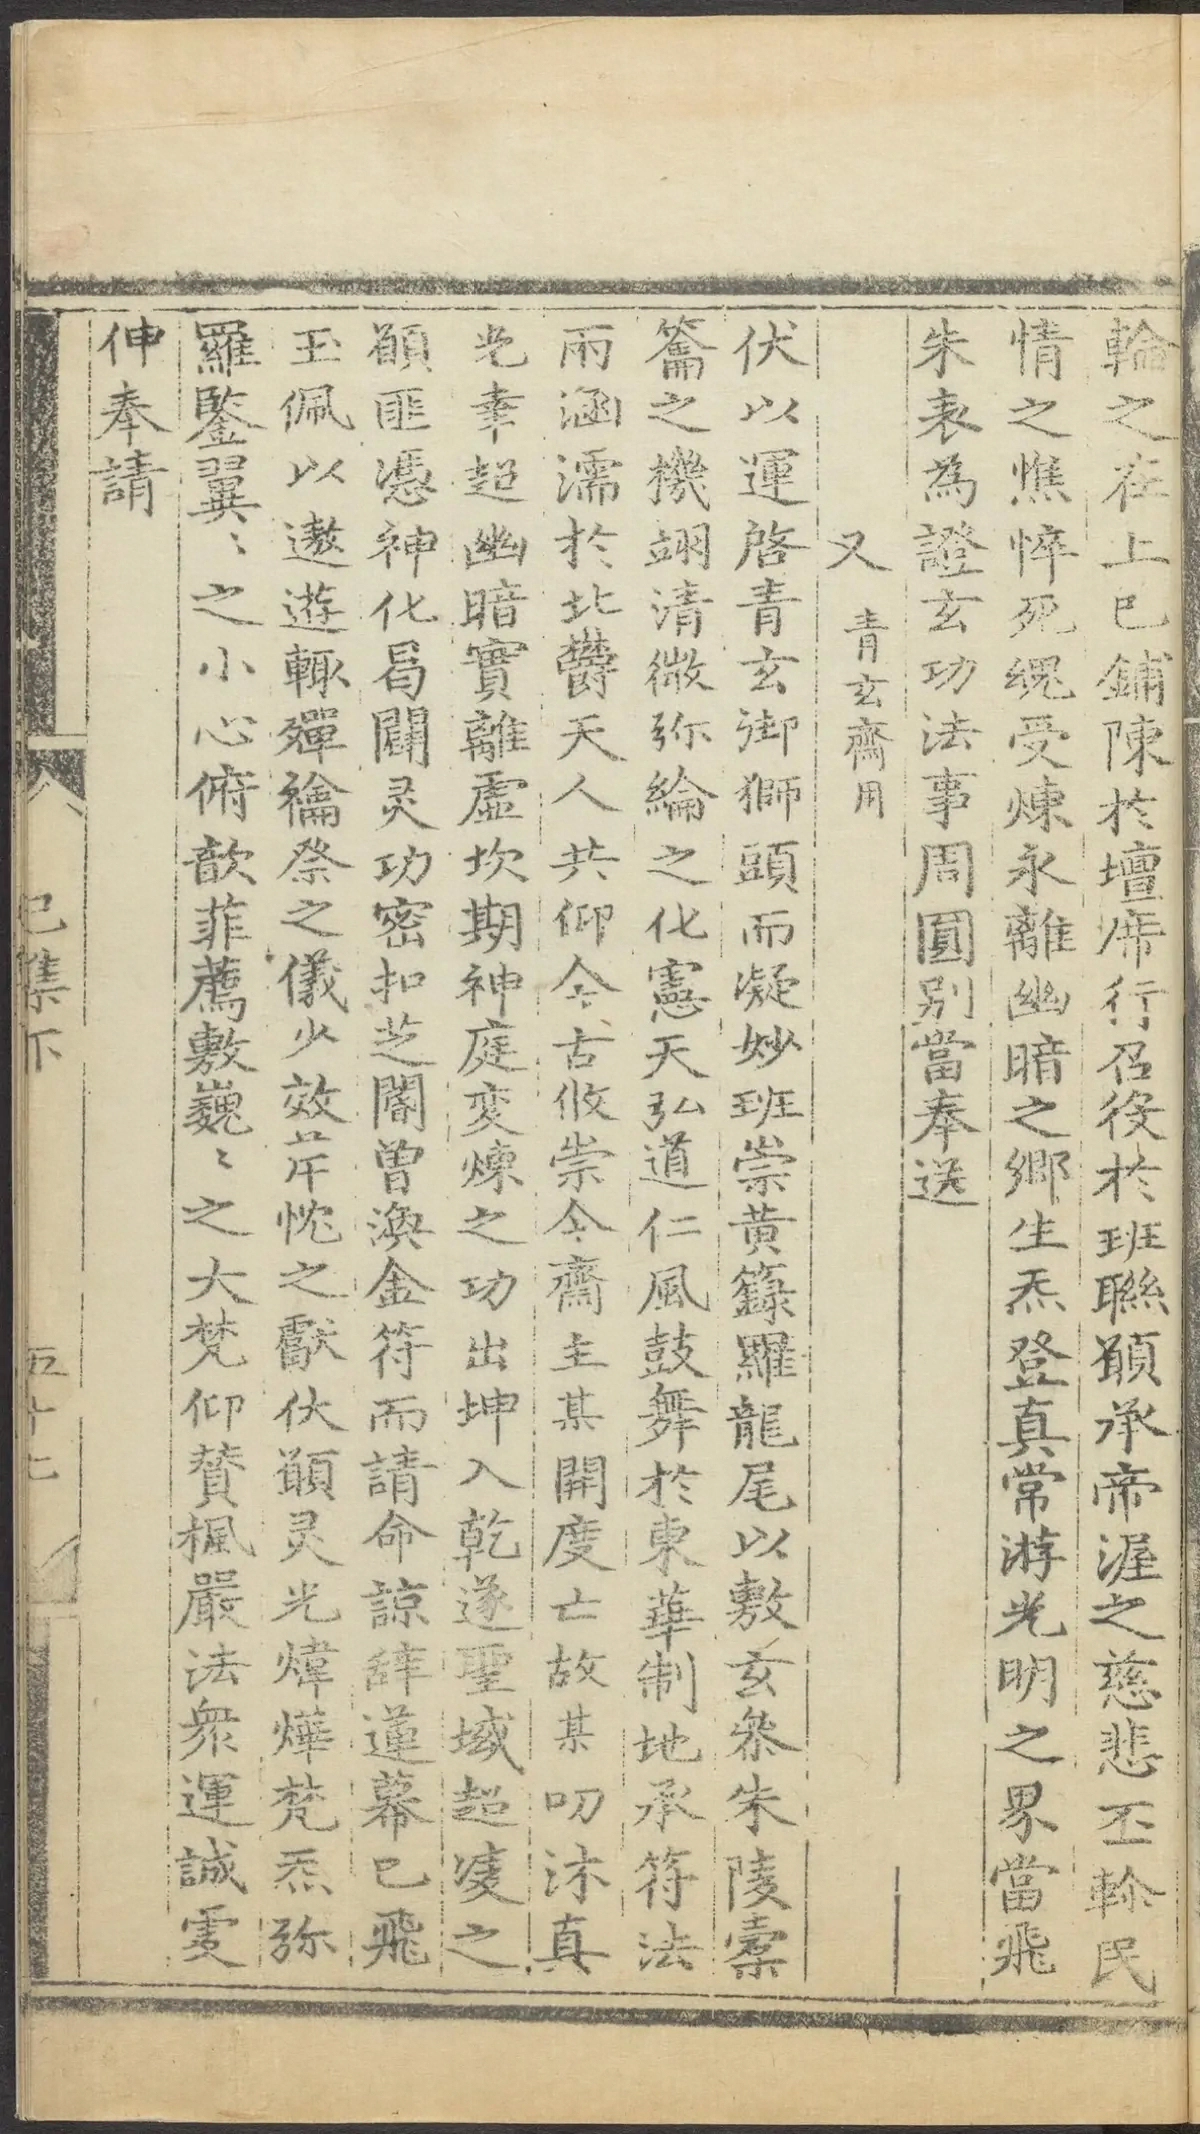 輪之在上已鋪陳於壇席行召役於班聯願承帝渥之慈悲丕軫民
情之憔悴死魂受煉永離幽暗之鄉生炁登真常游光明之界當飛
朱表為證玄功法事周圓别當奉送
又 青玄齋用
伏以運啓青玄御獅頭而凝妙班崇黄籙羅龍尾以敷玄叅朱陵槖
籥之機翊清微弥綸之化憲天弘道仁風鼓舞於東華制地承符法
雨涵濡於北鬱天人共仰今古攸崇今齋主某開度亡故某叨沐真
光幸超幽暗實離虚坎期神庭变煉之功出坤入乾遂聖域超凌之
願匪憑神化曷闡灵功密扣芝闇曾渙金符而請命諒辞蓮幕已飛
玉佩以遨遊輒殫禴祭之儀少效芹忱之獻伏願灵光煒燁梵炁弥
羅鑒翼〻之小心俯歆菲薦敷巍〻之大梵仰賛楓嚴法衆運誠虔
伸奉請
巳集下 五十七